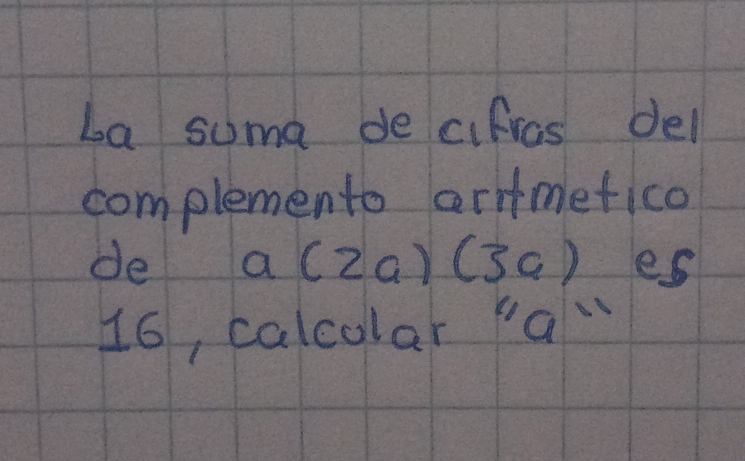 La suma de cifras del
complemento aritmetico
de a(2a)(3a) es
16, calcular "a"